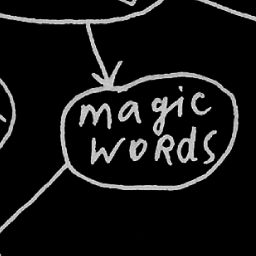 magic
words